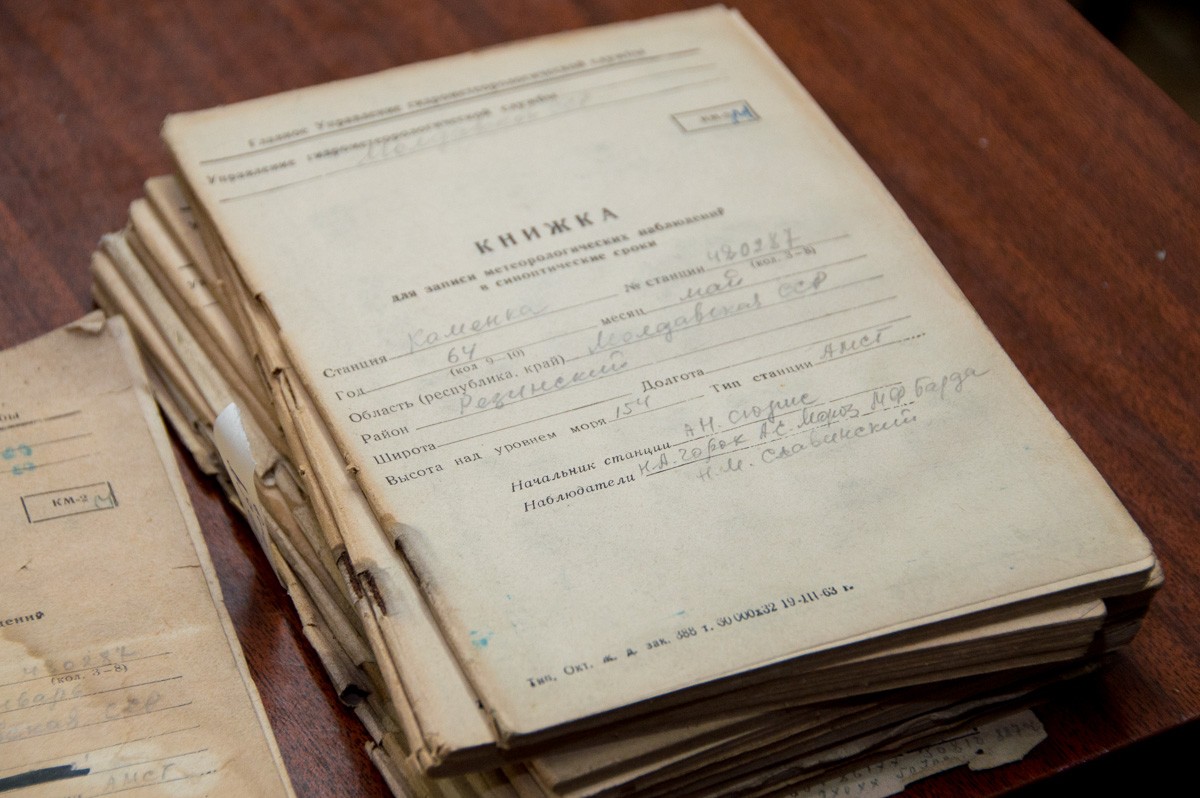 Главное Управление гидрометеорологической службы
Управление гидрометеорологической службы
КМ-2 М
КНИЖКА
для записи метеорологических наблюдений
в синоптические сроки
Станция Каменка № станции 420287
(кол. 3–8)
Год 64 месяц май
(кол 9–10)
Область (республика, край) Молдавская ССР
Район Резинский
Широта Долгота
Высота над уровнем моря 154 Тип станции АМСГ
Начальник станции А.Н.
Наблюдатели Н.А. Горок А.С. Мороз М.Ф. Барда
Н.М. Славинский
Тип, Окт. ж. д. зак. 388 т. 50 000х32 19-III-63 г.
КМ-2 М
420287
(кол. 3–8)
ССР
АМСГ